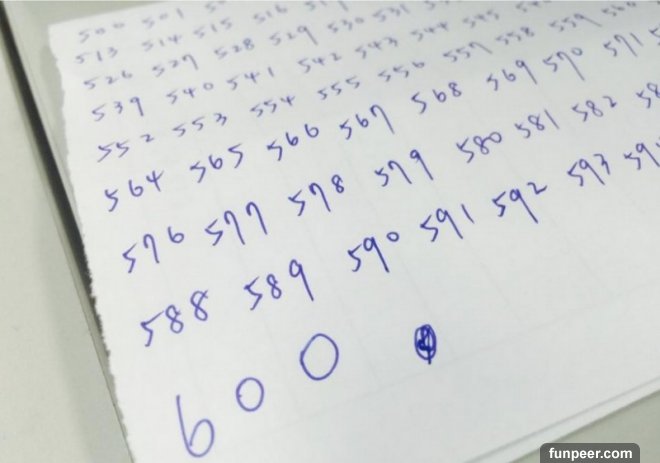 500 501
513 514 515 516 517
526 527 528 529 530 531
539 540 541 542 543 544 545
552 553 554 555 556 557 558 559 560
564 565 566 567 568 569 570 571
576 577 578 579 580 581 582
588 589 590 591 592 593
600
funpeer.com